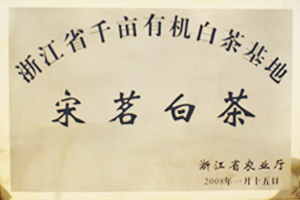 浙江省千亩有机白茶基地
宋茗白茶
浙江省农业厅
2008年一月十五日